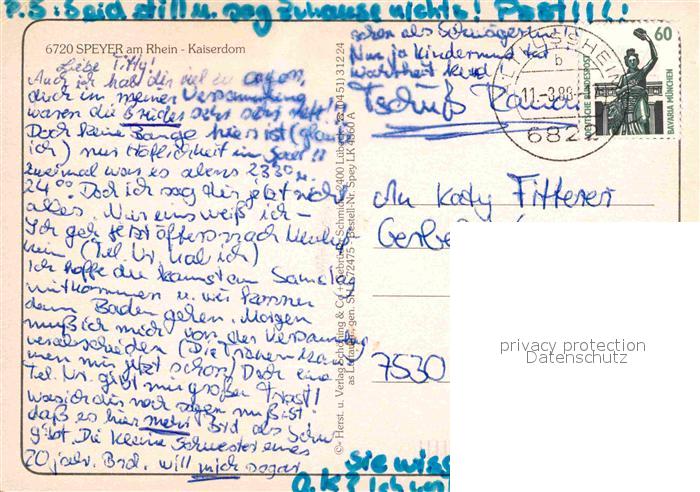 P.S: Seid still u. sag zuhause nichts! Post!!!!
6720 SPEYER am Rhein - Kaiserdom
Liebe Titty!
Auch ich hab dir viel zu sagen,
doch in meiner Versammlung
waren die Brüder sehr sehr nett!
Doch keine Bange hier ist (glaub
ich) nur Höflichkeit im Spiel!!
zweimal war es abens 23 30 u.
24 00. Doch ich sag dir jetzt nicht
alles. Nur eins weiß ich -
Ich geh jetzt öfters nach
heim (Tel. Nr. hab ich)
Ich hoffe du kannst am Samstag
mitkommen u. wir können
dann Baden gehen. Morgen
muß ich mich von der Versammlung
verabschieden (Die Tränen
men mir jetzt schon) Doch eine
Tel. Nr. gibt mir großen Trost!
was ich dir noch sagen muß ist
daß es hier mehr Brd. als Schw.
gibt. Die kleine Schwester eines
20 jähr. Brd. will mich sogar
schon als Schwägerin!
Nur ja Kindermund tut
Wahrheit kund
Tschüß
60
DEUTSCHE BUNDESPOST
BAVARIA MÜNCHEN
b
11.-3.88
6822
An Katy Fitterer
7530
© Herst. u. Verlag Schöning & Co + Gebrüder Schmidt, 2400 Lübeck, (04 51) 3 12 24
Bestell-Nr. Spey LK 4860 A
privacy protection
Datenschutz
Sie
O.K? Ich